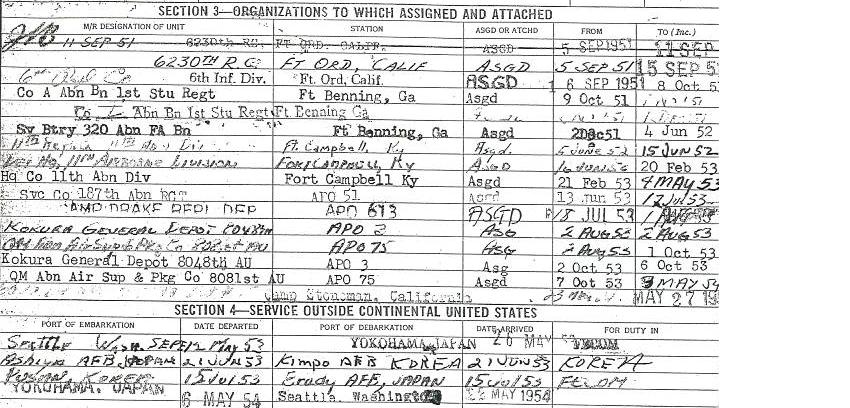 SECTION 3—ORGANIZATIONS TO WHICH ASSIGNED AND ATTACHED
M/R DESIGNATION OF UNIT STATION ASGD OR ATCHD FROM TO (Inc.)
11 SEP 51 6230th RG. FT ORD. CALIF. ASGD 5 SEP 1951 11 SEP
6230TH R.G. FT ORD, CALIF ASGD 5 SEP 51 15 SEP 5
6th Inf. Div. Ft. Ord, Calif. ASGD 16 SEP 1951 8 Oct 5
Co A Abn Bn 1st Stu Regt Ft Benning, Ga Asgd 9 Oct 51
Co Abn Bn 1st Stu Regt Ft Benning Ga
Sv Btry 320 Abn FA Bn Ft Benning, Ga Asgd 2Dec51 4 Jun 52
Ft. Campbell, Ky Asgd. 5 JUNE 52 15 JUN 52
Hq, 11TH AIRBORNE DIVISION FORT CAMPBELL, Ky ASGD 16 JUN 52 20 Feb 53
Hq Co 11th Abn Div Fort Campbell Ky Asgd 21 Feb 53 4 MAY 53
Svc Co 187th Abn RCT APO 51 Asgd 13 Jun 53 12 Jul 53
CAMP DRAKE REPL DEP APO 613 ASGD 18 JUL 53 1
KOKURA GENERAL DEPOT 8048th APO 3 ASG 2 AUG 53 2 AUG 53
QM Abn Air Sup & Pkg Co AU APO 75 ASG 2 Aug 53 1 Oct 53
Kokura General Depot 8048th AU APO 3 Asg 2 Oct 53 6 Oct 53
QM Abn Air Sup & Pkg Co 8081st AU APO 75 Asgd 7 Oct 53 3 MAY 54
Camp Stoneman, California MAY 27 195
SECTION 4—SERVICE OUTSIDE CONTINENTAL UNITED STATES
PORT OF EMBARKATION DATE DEPARTED PORT OF DEBARKATION DATE ARRIVED FOR DUTY IN
Seattle Wash May 53 YOKOHAMA, JAPAN 26 MAY FECOM
Ashiya AFB, JAPAN 21 JUN 53 Kimpo AFB KOREA 21 JUN 53 KOREA
Pusan, KOREA 15 Jul 53 Brady AFB, JAPAN 15 Jul 53 FECOM
YOKOHAMA, JAPAN 6 MAY 54 Seattle, Washington MAY 1954